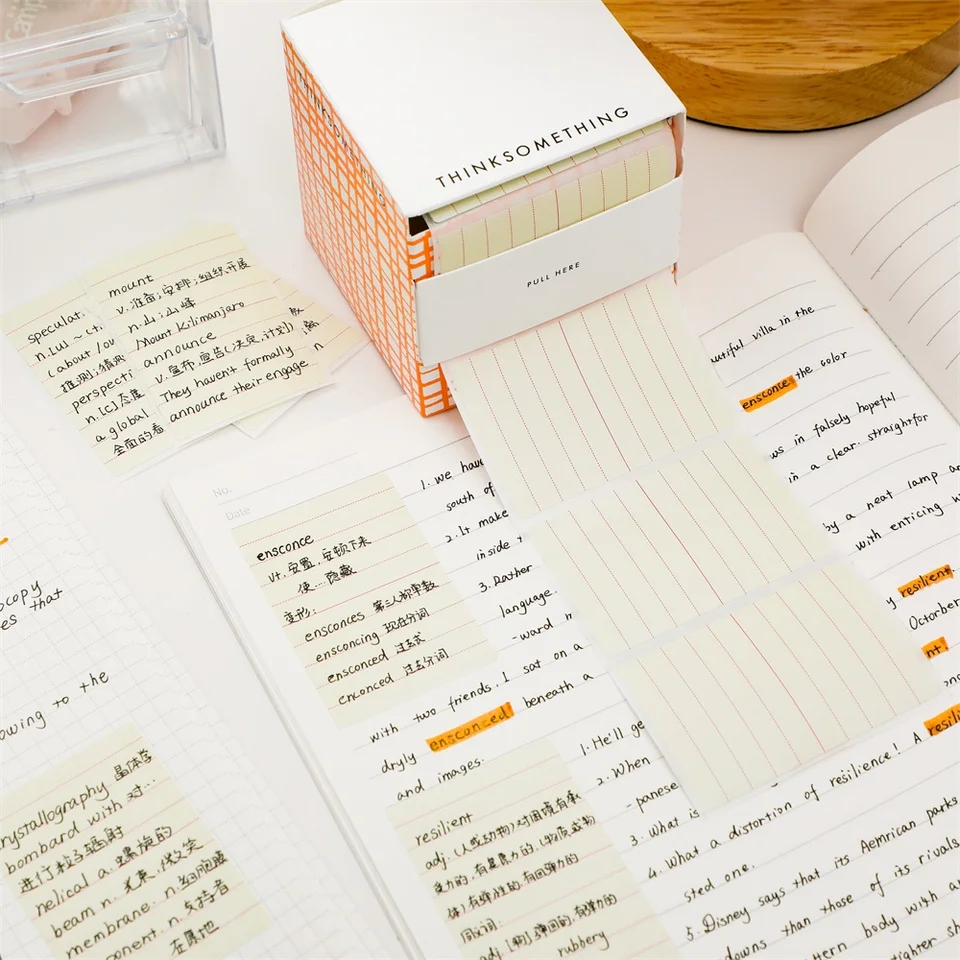 THINKSOMETHING
THINKSOMETHING
PULL HERE
mount
v.准备;安排;组织开展
n.山;山峰
Mount Kilimanjaro
announce
v.宣布,宣告(决定,计划)
They haven't formally
announce their engage
speculat
n.[U]
(about / ou
推测;猜测
perspecti
n.[C]态度
a global
全面的看
n
No.
Date
ensconce
vt.安置,安顿下来
使…隐藏
变形:
ensconces 第三人称单数
ensconcing 现在分词
ensconced 过去式
enconced 过去分词
1. we have
south of
2. It make
inside
3. Rather
language.
-ward
with two friends. I sat on a
dryly ensconced beneath a
and images.
autiful villa in the
ensconce the color
ws in falsely hopeful
in a clear. straightfor
by a neat lamp
with enticing
y resilient
Octorber
nt
resili
resilient
adj.(人或动物)对困境有承
受力的,有复原力的,(物质或物
体)有弹性的,有回弹力的
同义词:
adj.[钢]弹回的,有弹力的
rubbery
1. He'll ge
2. When
-panese
3. What is a distortion of resilience! A
4. What a
sted one.
5. Disney says that its Aemrican parks
downs than those of its rivals
ttern body with
tighter
scopy
es that
owing to the
rystallography 晶体学
bombard with 对…
进行粒子辐射
helical a.螺旋的
beam n.光束,微笑
membrane. n.细胞膜
ponent. n.支持者
在原地